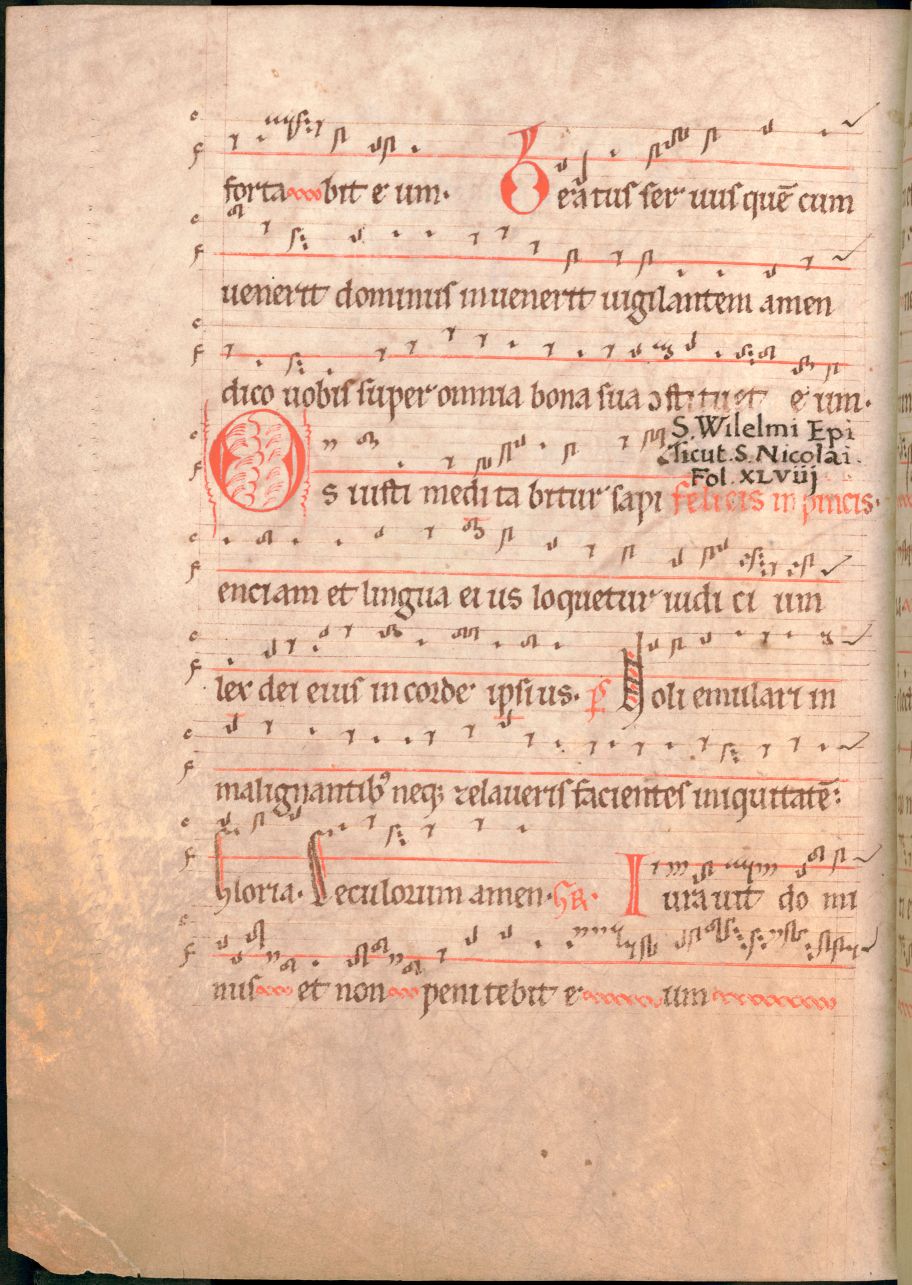 forta bit e um. Beatus ser uus quē cum
uenerit dominus inuenerit uigilantem amen
dico uobis super omnia bona sua ɔstituet e um.
S. Wilelmi Epi
sicut S. Nicolai.
Fol. XLVIIJ
Os iusti medi ta bitur sapi felicis in pincis.
enciam et lingua ei us loquetur iudi ci um
lex dei eius in corde ipsi us. Ps Noli emulari in
malignantibꝰ neqꝫ zelaueris facientes iniquitatē:
Gloria. Seculorum amen. GR. Iurauit do mi
nus et non peni tebit e um